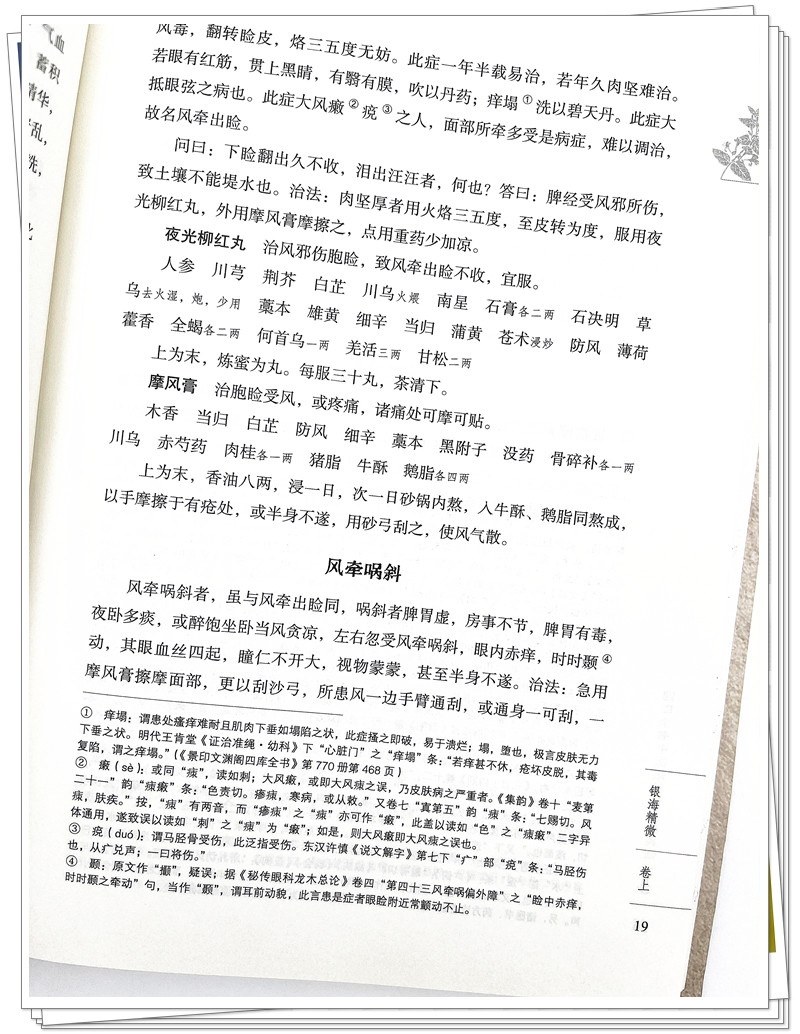 气血
蓄积
清华，
乱，
洗，
风毒，翻转睑皮，烙三五度无妨。此症一年半载易治，若年久肉坚难治。
若眼有红筋，贯上黑睛，有翳有膜，吹以丹药；痒塌①洗以碧天丹。此症大
抵眼弦之病也。此症大风癞②㾃③之人，面部所牵多受是病症，难以调治，
故名风牵出睑。
问曰：下睑翻出久不收，泪出汪汪者，何也？答曰：脾经受风邪所伤，
致土壤不能堤水也。治法：肉坚厚者用火烙三五度，至皮转为度，服用夜
光柳红丸，外用摩风膏摩擦之，点用重药少加凉。
夜光柳红丸 治风邪伤胞睑，致风牵出睑不收，宜服。
人参 川芎 荆芥 白芷 川乌火煨 南星 石膏各二两 石决明 草
乌去火湿，炮，少用 藁本 雄黄 细辛 当归 蒲黄 苍术浸炒 防风 薄荷
藿香 全蝎各二两 何首乌一两 羌活三两 甘松二两
上为末，炼蜜为丸。每服三十丸，茶清下。
摩风膏 治胞睑受风，或疼痛，诸痛处可摩可贴。
木香 当归 白芷 防风 细辛 藁本 黑附子 没药 骨碎补各一两
川乌 赤芍药 肉桂各一两 猪脂 牛酥 鹅脂各四两
上为末，香油八两，浸一日，次一日砂锅内熬，入牛酥、鹅脂同熬成，
以手摩擦于有疮处，或半身不遂，用砂弓刮之，使风气散。
风牵㖞斜
风牵㖞斜者，虽与风牵出睑同，㖞斜者脾胃虚，房事不节，脾胃有毒，
夜卧多痰，或醉饱坐卧当风贪凉，左右忽受风牵㖞斜，眼内赤痒，时时颞④
动，其眼血丝四起，瞳仁不开大，视物蒙蒙，甚至半身不遂。治法：急用
摩风膏擦摩面部，更以刮沙弓，所患风一边手臂通刮，或通身一可刮，一
① 痒塌：谓患处瘙痒难耐且肌肉下垂如塌陷之状，此症搔之即破，易于溃烂；塌，堕也，极言皮肤无力
下垂之状。明代王肯堂《证治准绳·幼科》下“心脏门”之“痒塌”条：“若痒甚不休，疮坏皮脱，其毒
复陷，谓之痒塌。”（《景印文渊阁四库全书》第770册第468页）
② 癞（sè）：或同“㾊”，读如刺；大风癞，或即大风㾊之误，乃皮肤病之严重者。《集韵》卷十“麦第
二十一”韵“㾊瘷”条：“色责切。瘆㾊，寒病，或从敕。”又卷七“寘第五”韵“㾊”条：“七赐切。风
㾊，肤疾。”按，“㾊”有两音，而“瘆㾊”之“㾊”亦可作“瘷”，此盖以读如“色”之“㾊瘷”二字异
体通用，遂致误以读如“刺”之“㾊”为“瘷”；如是，则大风瘷即大风㾊之误也。
③ 㾃（duó）：谓马胫骨受伤，此泛指受伤。东汉许慎《说文解字》第七下“疒”部“㾃”条：“马胫伤
也，从疒兑声；一曰将伤。”
④ 颞：原文作“㩶”，疑误；据《秘传眼科龙木总论》卷四“第四十三风牵㖞偏外障”之“睑中赤痒，
时时颞之牵动”句，当作“颞”，谓耳前动貌，此言患是症者眼睑附近常颤动不止。
银海精微
卷上
19